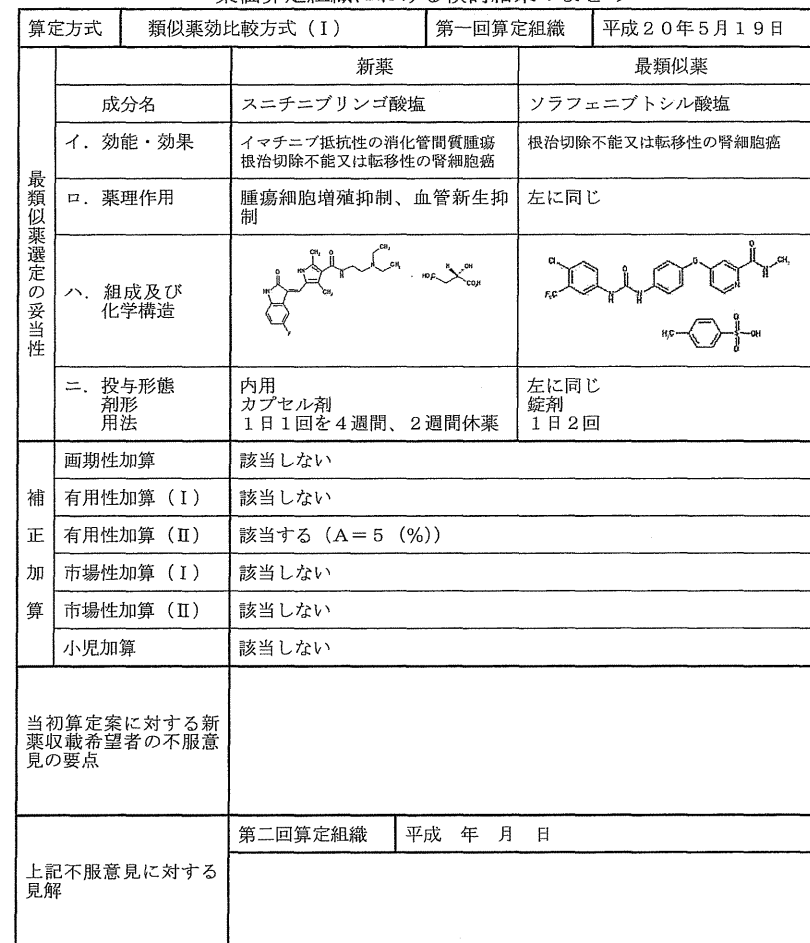 算定方式 類似薬効比較方式（Ⅰ） 第一回算定組織 平成２０年５月１９日
最類似薬選定の妥当性
新薬 最類似薬
成分名 スニチニブリンゴ酸塩 ソラフェニブトシル酸塩
イ．効能・効果 イマチニブ抵抗性の消化管間質腫瘍 根治切除不能又は転移性の腎細胞癌
根治切除不能又は転移性の腎細胞癌
ロ．薬理作用 腫瘍細胞増殖抑制、血管新生抑 左に同じ
制
ハ．組成及び
化学構造
ニ．投与形態 内用 左に同じ
剤形 カプセル剤 錠剤
用法 １日１回を４週間、２週間休薬 １日２回
補正加算
画期性加算 該当しない
有用性加算（Ⅰ） 該当しない
有用性加算（Ⅱ） 該当する（Ａ＝５（％））
市場性加算（Ⅰ） 該当しない
市場性加算（Ⅱ） 該当しない
小児加算 該当しない
当初算定案に対する新
薬収載希望者の不服意
見の要点
第二回算定組織 平成 年 月 日
上記不服意見に対する
見解